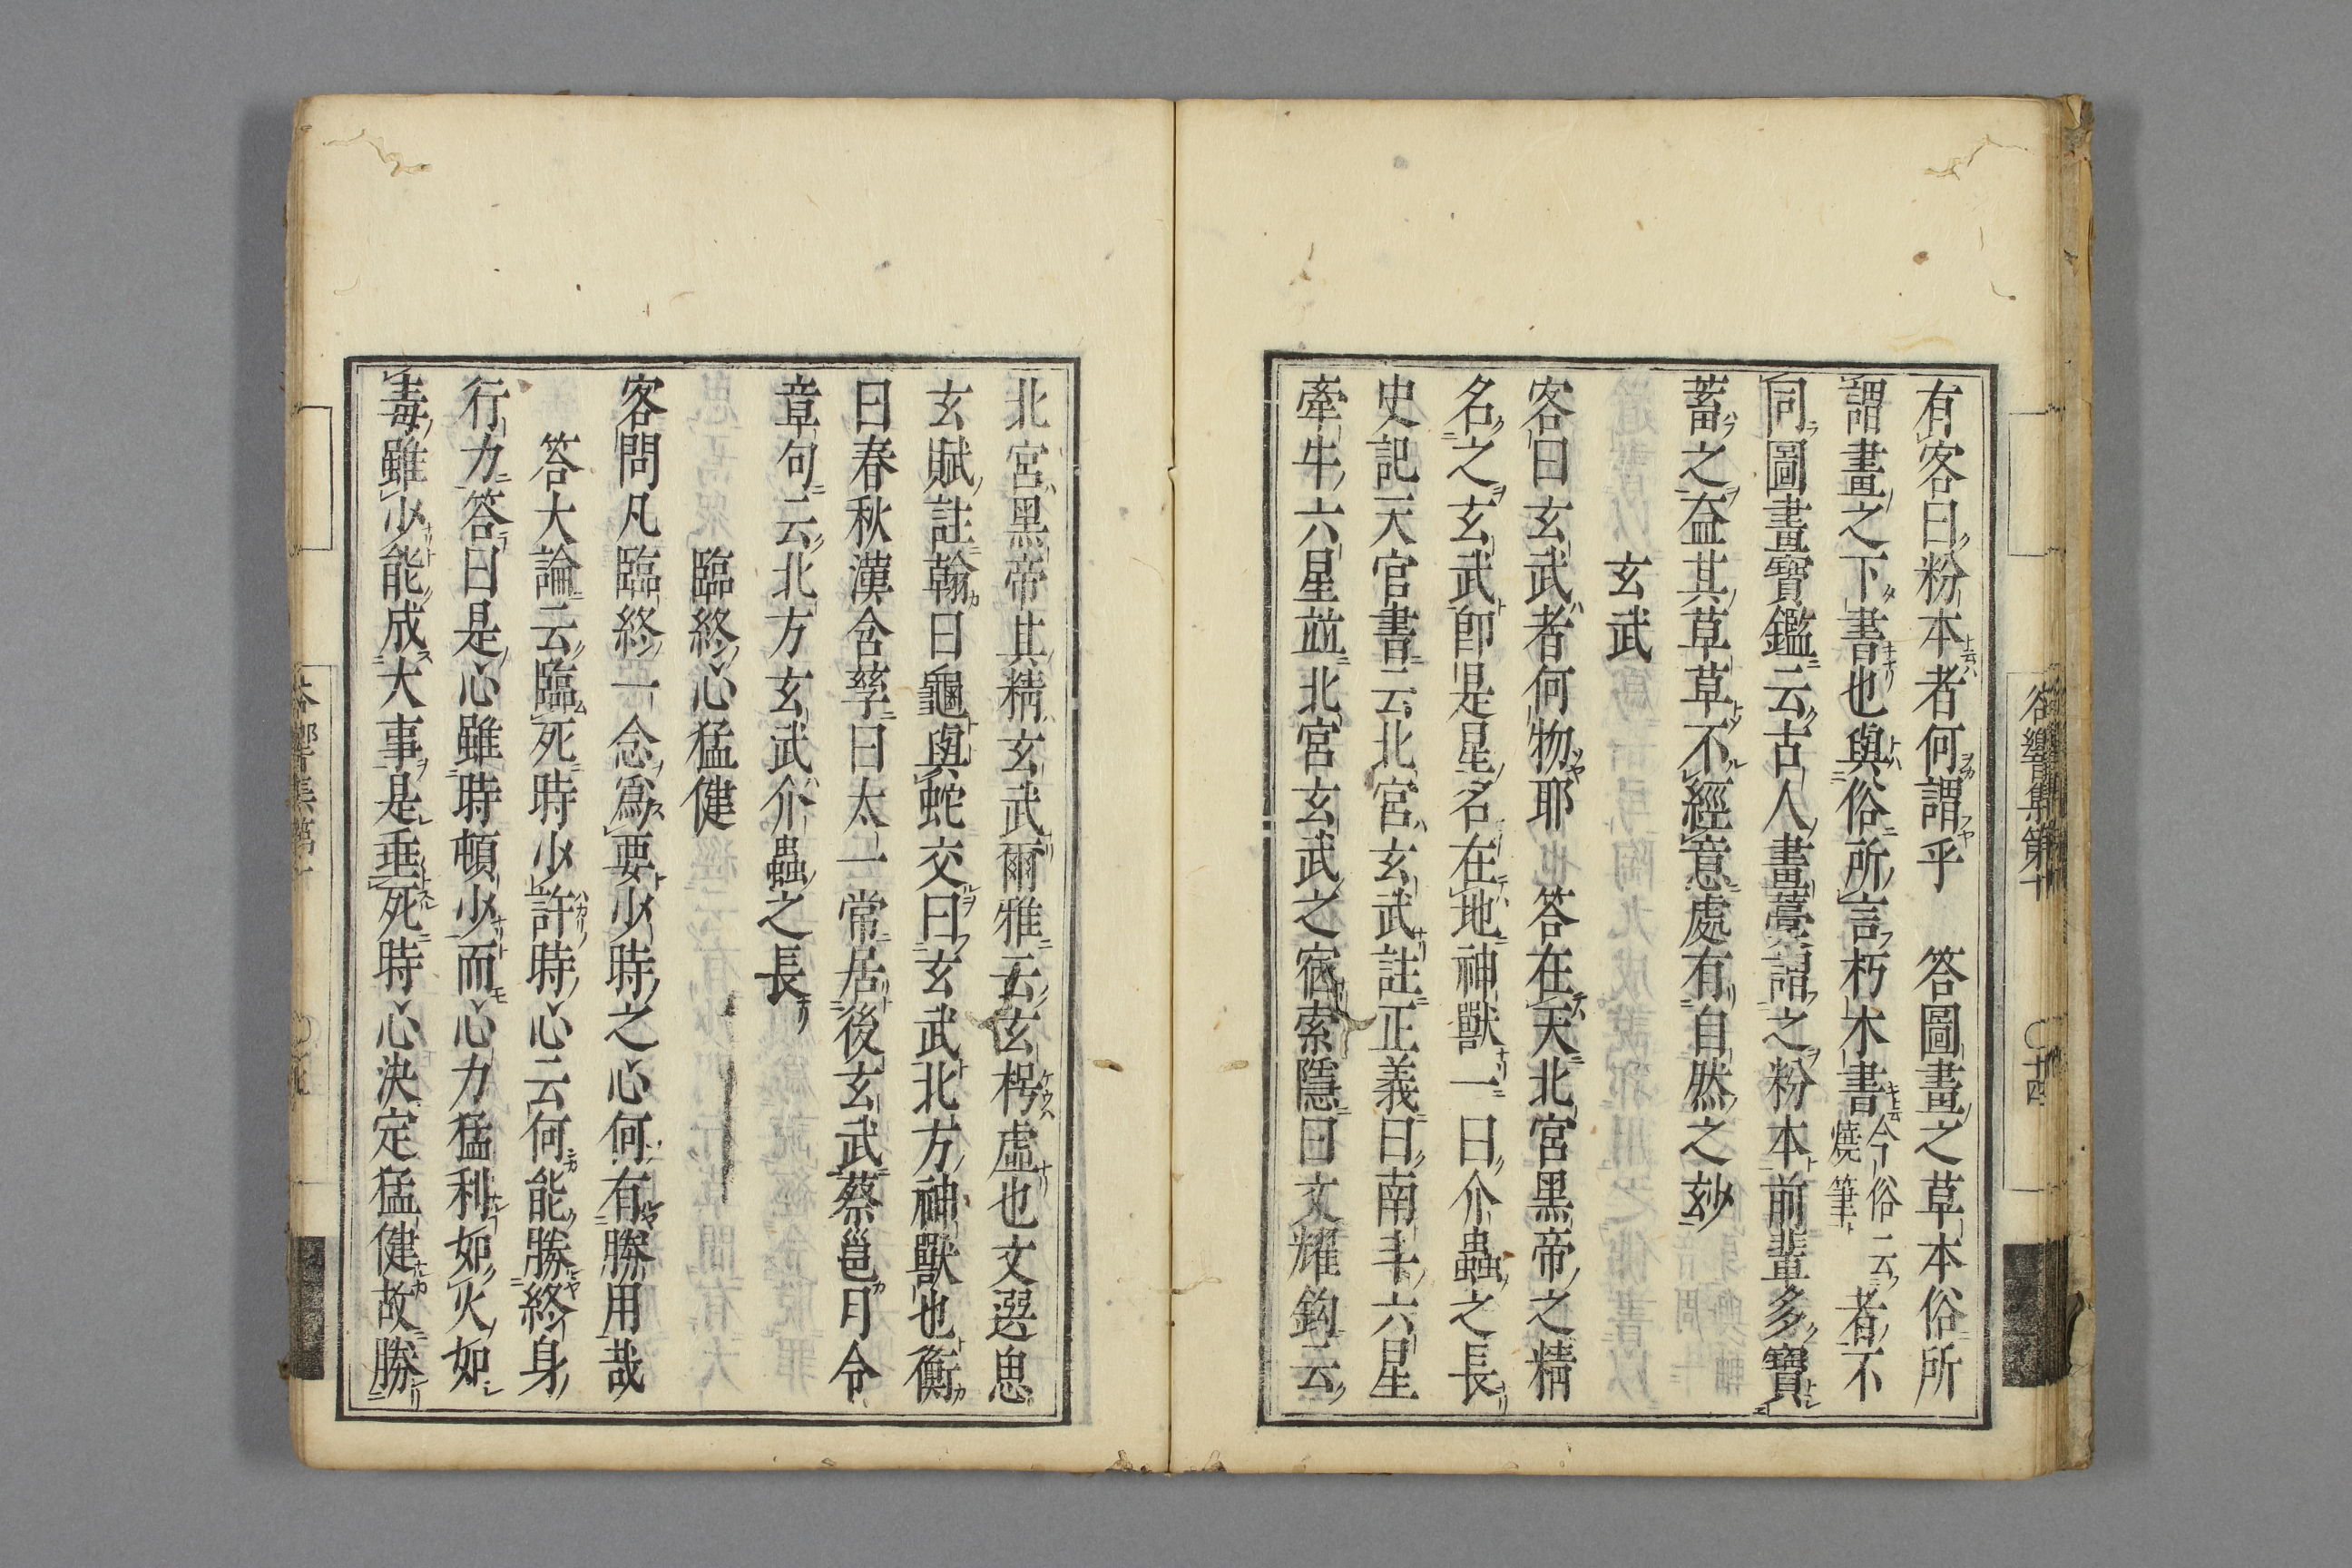 有客曰粉本者何謂乎　答圖畫之草本俗所
謂畫之下書也與俗所言朽木書今俗云燒筆者不
同圖畫寶鑑云古人畫藁謂之粉本前輩多寶
蓄之葢其草草不經意處有自然之玅
玄武
客曰玄武者何物耶　答在天北宮黑帝之精
名之玄武卽是星名在地神獸一曰介蟲之長
史記天官書云北宮玄武註正義曰南斗六星
牽牛六星並北宮玄武之宿索隱曰文耀鈎云
北宮黑帝其精玄武爾雅云玄枵虛也文選思
玄賦註翰曰龜與蛇交曰玄武北方神獸也衡
曰春秋漢含孳曰太一常居後玄武蔡邕月令
章句云北方玄武介蟲之長
臨終心猛健
客問凡臨終一念爲要少時之心何有勝用哉
答大論云臨死時少許時心云何能勝終身
行力答曰是心雖時頓少而心力猛利如火如
毒雖少能成大事是垂死時心決定猛健故勝
谷響集第十　〇十四